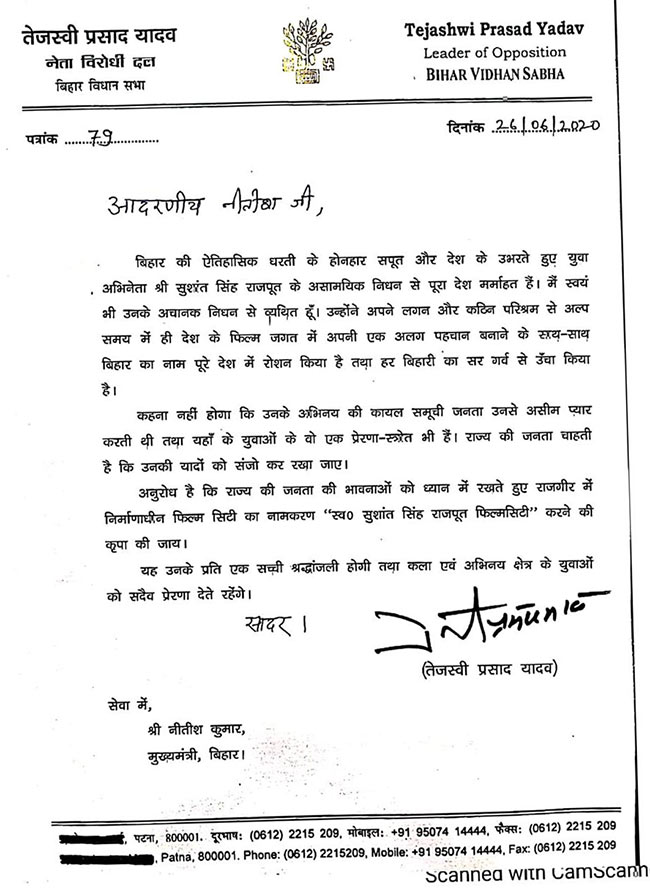 तेजस्वी प्रसाद यादव
नेता विरोधी दल
बिहार विधान सभा
Tejashwi Prasad Yadav
Leader of Opposition
BIHAR VIDHAN SABHA
पत्रांक ...79...
दिनांक 26/06/2020
आदरणीय नीतीश जी,
बिहार की ऐतिहासिक धरती के होनहार सपूत और देश के उभरते हुए युवा
अभिनेता श्री सुशांत सिंह राजपूत के असामयिक निधन से पूरा देश मर्माहत हैं। मैं स्वयं
भी उनके अचानक निधन से व्यथित हूँ। उन्होंने अपने लगन और कठिन परिश्रम से अल्प
समय में ही देश के फिल्म जगत में अपनी एक अलग पहचान बनाने के साथ-साथ
बिहार का नाम पूरे देश में रोशन किया है तथा हर बिहारी का सर गर्व से उँचा किया
है।
कहना नहीं होगा कि उनके अभिनय की कायल समूची जनता उनसे असीम प्यार
करती थी तथा यहाँ के युवाओं के वो एक प्रेरणा-स्त्रोत भी हैं। राज्य की जनता चाहती
है कि उनकी यादों को संजो कर रखा जाए।
अनुरोध है कि राज्य की जनता की भावनाओं को ध्यान में रखते हुए राजगीर में
निर्माणाधीन फिल्म सिटी का नामकरण “स्व० सुशांत सिंह राजपूत फिल्मसिटी” करने की
कृपा की जाय।
यह उनके प्रति एक सच्ची श्रद्धांजली होगी तथा कला एवं अभिनय क्षेत्र के युवाओं
को सदैव प्रेरणा देते रहेंगे।
सादर।
(तेजस्वी प्रसाद यादव)
सेवा में,
श्री नीतीश कुमार,
मुख्यमंत्री, बिहार।
पटना, 800001. दूरभाष: (0612) 2215 209, मोबाइल: +91 95074 14444, फैक्स: (0612) 2215 209
Patna, 800001. Phone: (0612) 2215209, Mobile: +91 95074 14444, Fax: (0612) 2215 209
Scanned with CamScann